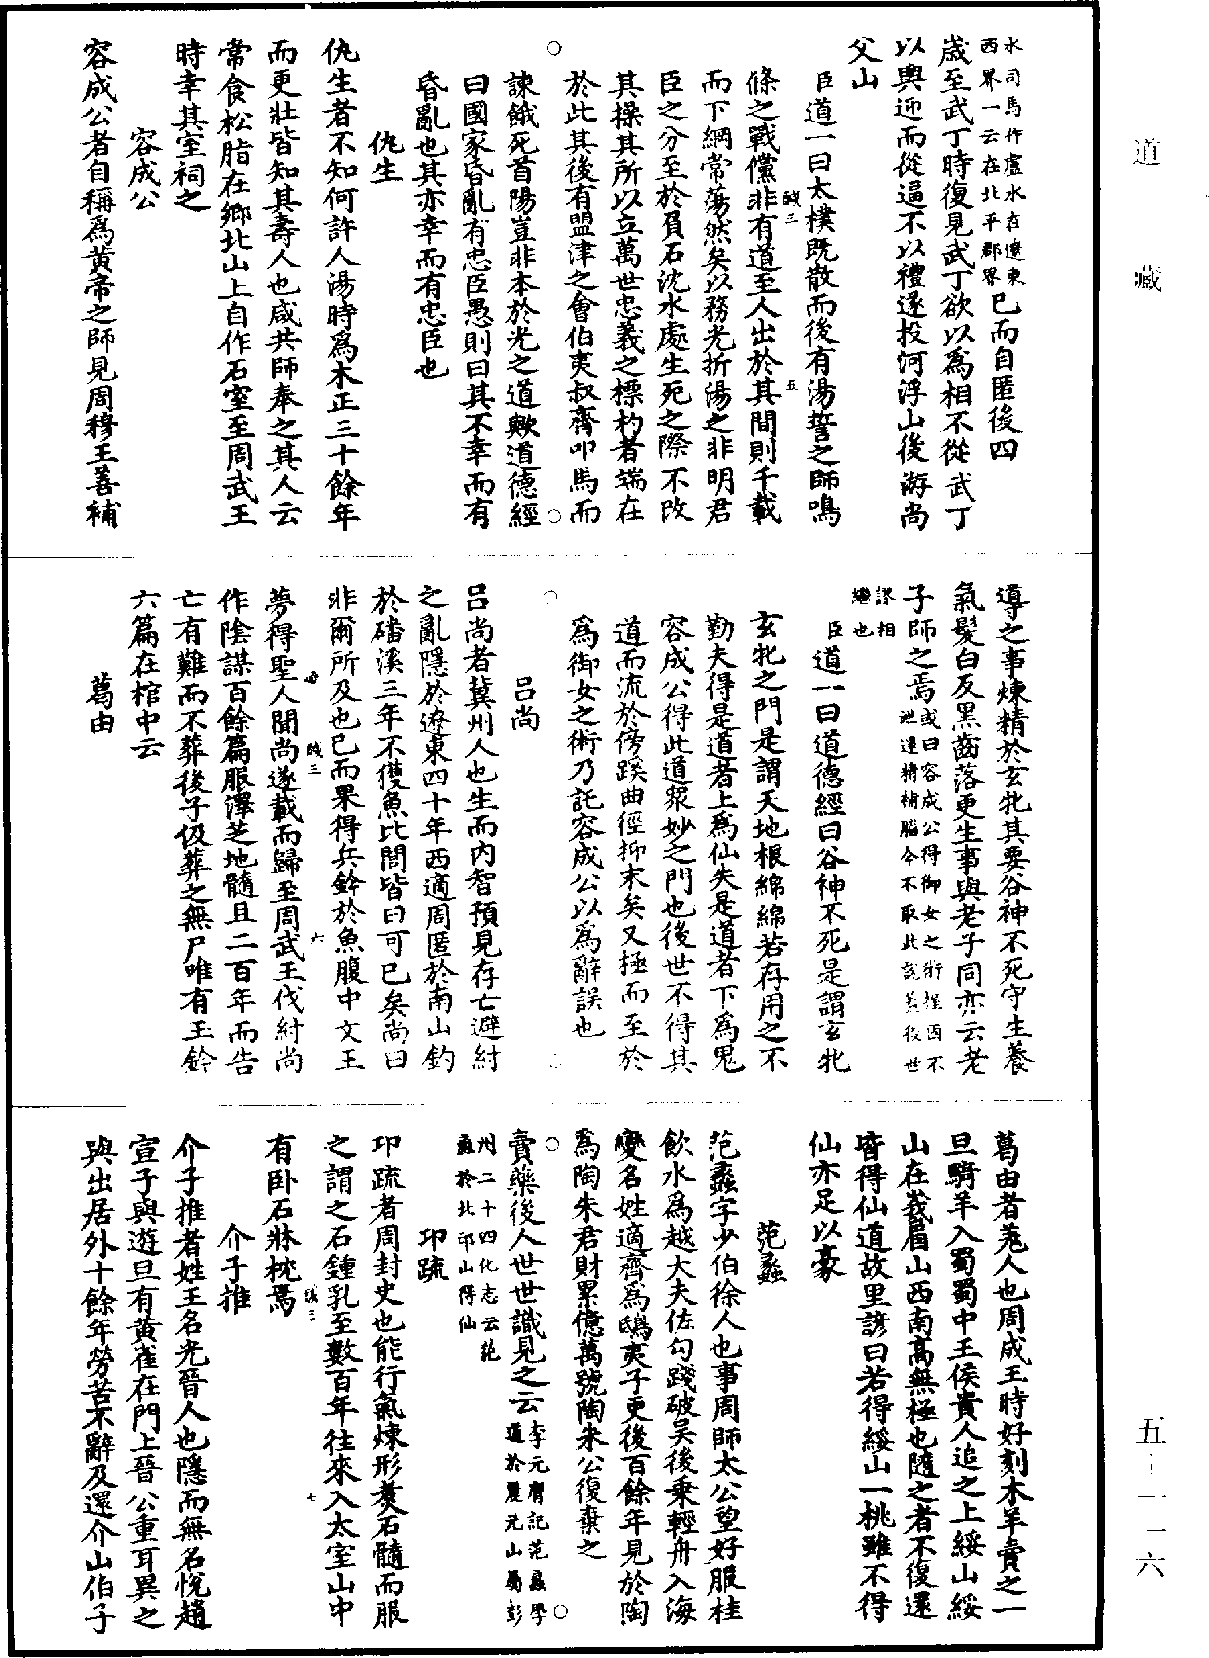 道藏
五—一一六
水司馬作盧水在遼東
西界一云在北平郡界已而自匿後四
歲至武丁時復見武丁欲以爲相不從武丁
以輿迎而從逼不以禮遂投河浮山後游尚
父山
臣道一曰太樸旣散而後有湯誓之師鳴
賊三
五
條之戰儻非有道至人出於其間則千載
而下綱常蕩然矣以務光折湯之非明君
臣之分至於負石沈水處生死之際不改
其操其所以立萬世忠義之標杓者端在
於此其後有盟津之會伯夷叔齊叩馬而
諫餓死首陽豈非本於光之道歟道德經
曰國家昏亂有忠臣愚則曰其不幸而有
昏亂也其亦幸而有忠臣也
仇生
仇生者不知何許人湯時爲木正三十餘年
而更壯皆知其壽人也咸共師奉之其人云
常食松脂在鄉北山上自作石室至周武王
時幸其室祠之
容成公
容成公者自稱爲黄帝之師見周穆王善補
導之事煉精於玄牝其要谷神不死守生養
氣髮白反黑齒落更生事與老子同亦云老
子師之焉或曰容成公得御女之術握固不
泄還精補腦今不取此說蓋後世
謬相
繼也
臣道一曰道德經曰谷神不死是謂玄牝
玄牝之門是謂天地根綿綿若存用之不
勤夫得是道者上爲仙失是道者下爲鬼
容成公得此道衆妙之門也後世不得其
道而流於傍蹊曲徑抑末矣又極而至於
爲御女之術乃託容成公以爲辭誤也
吕尚
吕尚者冀州人也生而内智預見存亡避紂
之亂隱於遼東四十年西適周匿於南山釣
於磻溪三年不獲魚比閭皆曰可已矣尚曰
非爾所及也已而果得兵鈐於魚腹中文王
賊三
六
夢得聖人聞尚遂載而歸至周武王伐紂尚
作陰謀百餘篇服澤芝地髓且二百年而告
亡有難而不葬後子伋葬之無尸唯有玉鈐
六篇在棺中云
葛由
葛由者羗人也周成王時好刻木羊賣之一
旦騎羊入蜀蜀中王侯貴人追之上綏山綏
山在峩眉山西南高無極也隨之者不復還
皆得仙道故里諺曰若得綏山一桃雖不得
仙亦足以豪
范蠡
范蠡字少伯徐人也事周師太公望好服桂
飲水爲越大夫佐勾踐破吴後乘輕舟入海
變名姓適齊爲鴟夷子更後百餘年見於陶
爲陶朱君財累億萬號陶朱公復棄之
賣藥後人世世識見之云李元膺記范蠡學
道於麗元山屬彭
州二十四化志云范
蠡於北邙山得仙
卭疏
卭疏者周封史也能行氣煉形煑石髓而服
之謂之石鍾乳至數百年往來入太室山中
賊三
七
有卧石牀枕焉
介子推
介子推者姓王名光晉人也隱而無名悅趙
宣子與遊旦有黄雀在門上晉公重耳異之
與出居外十餘年勞苦不辭及還介山伯子